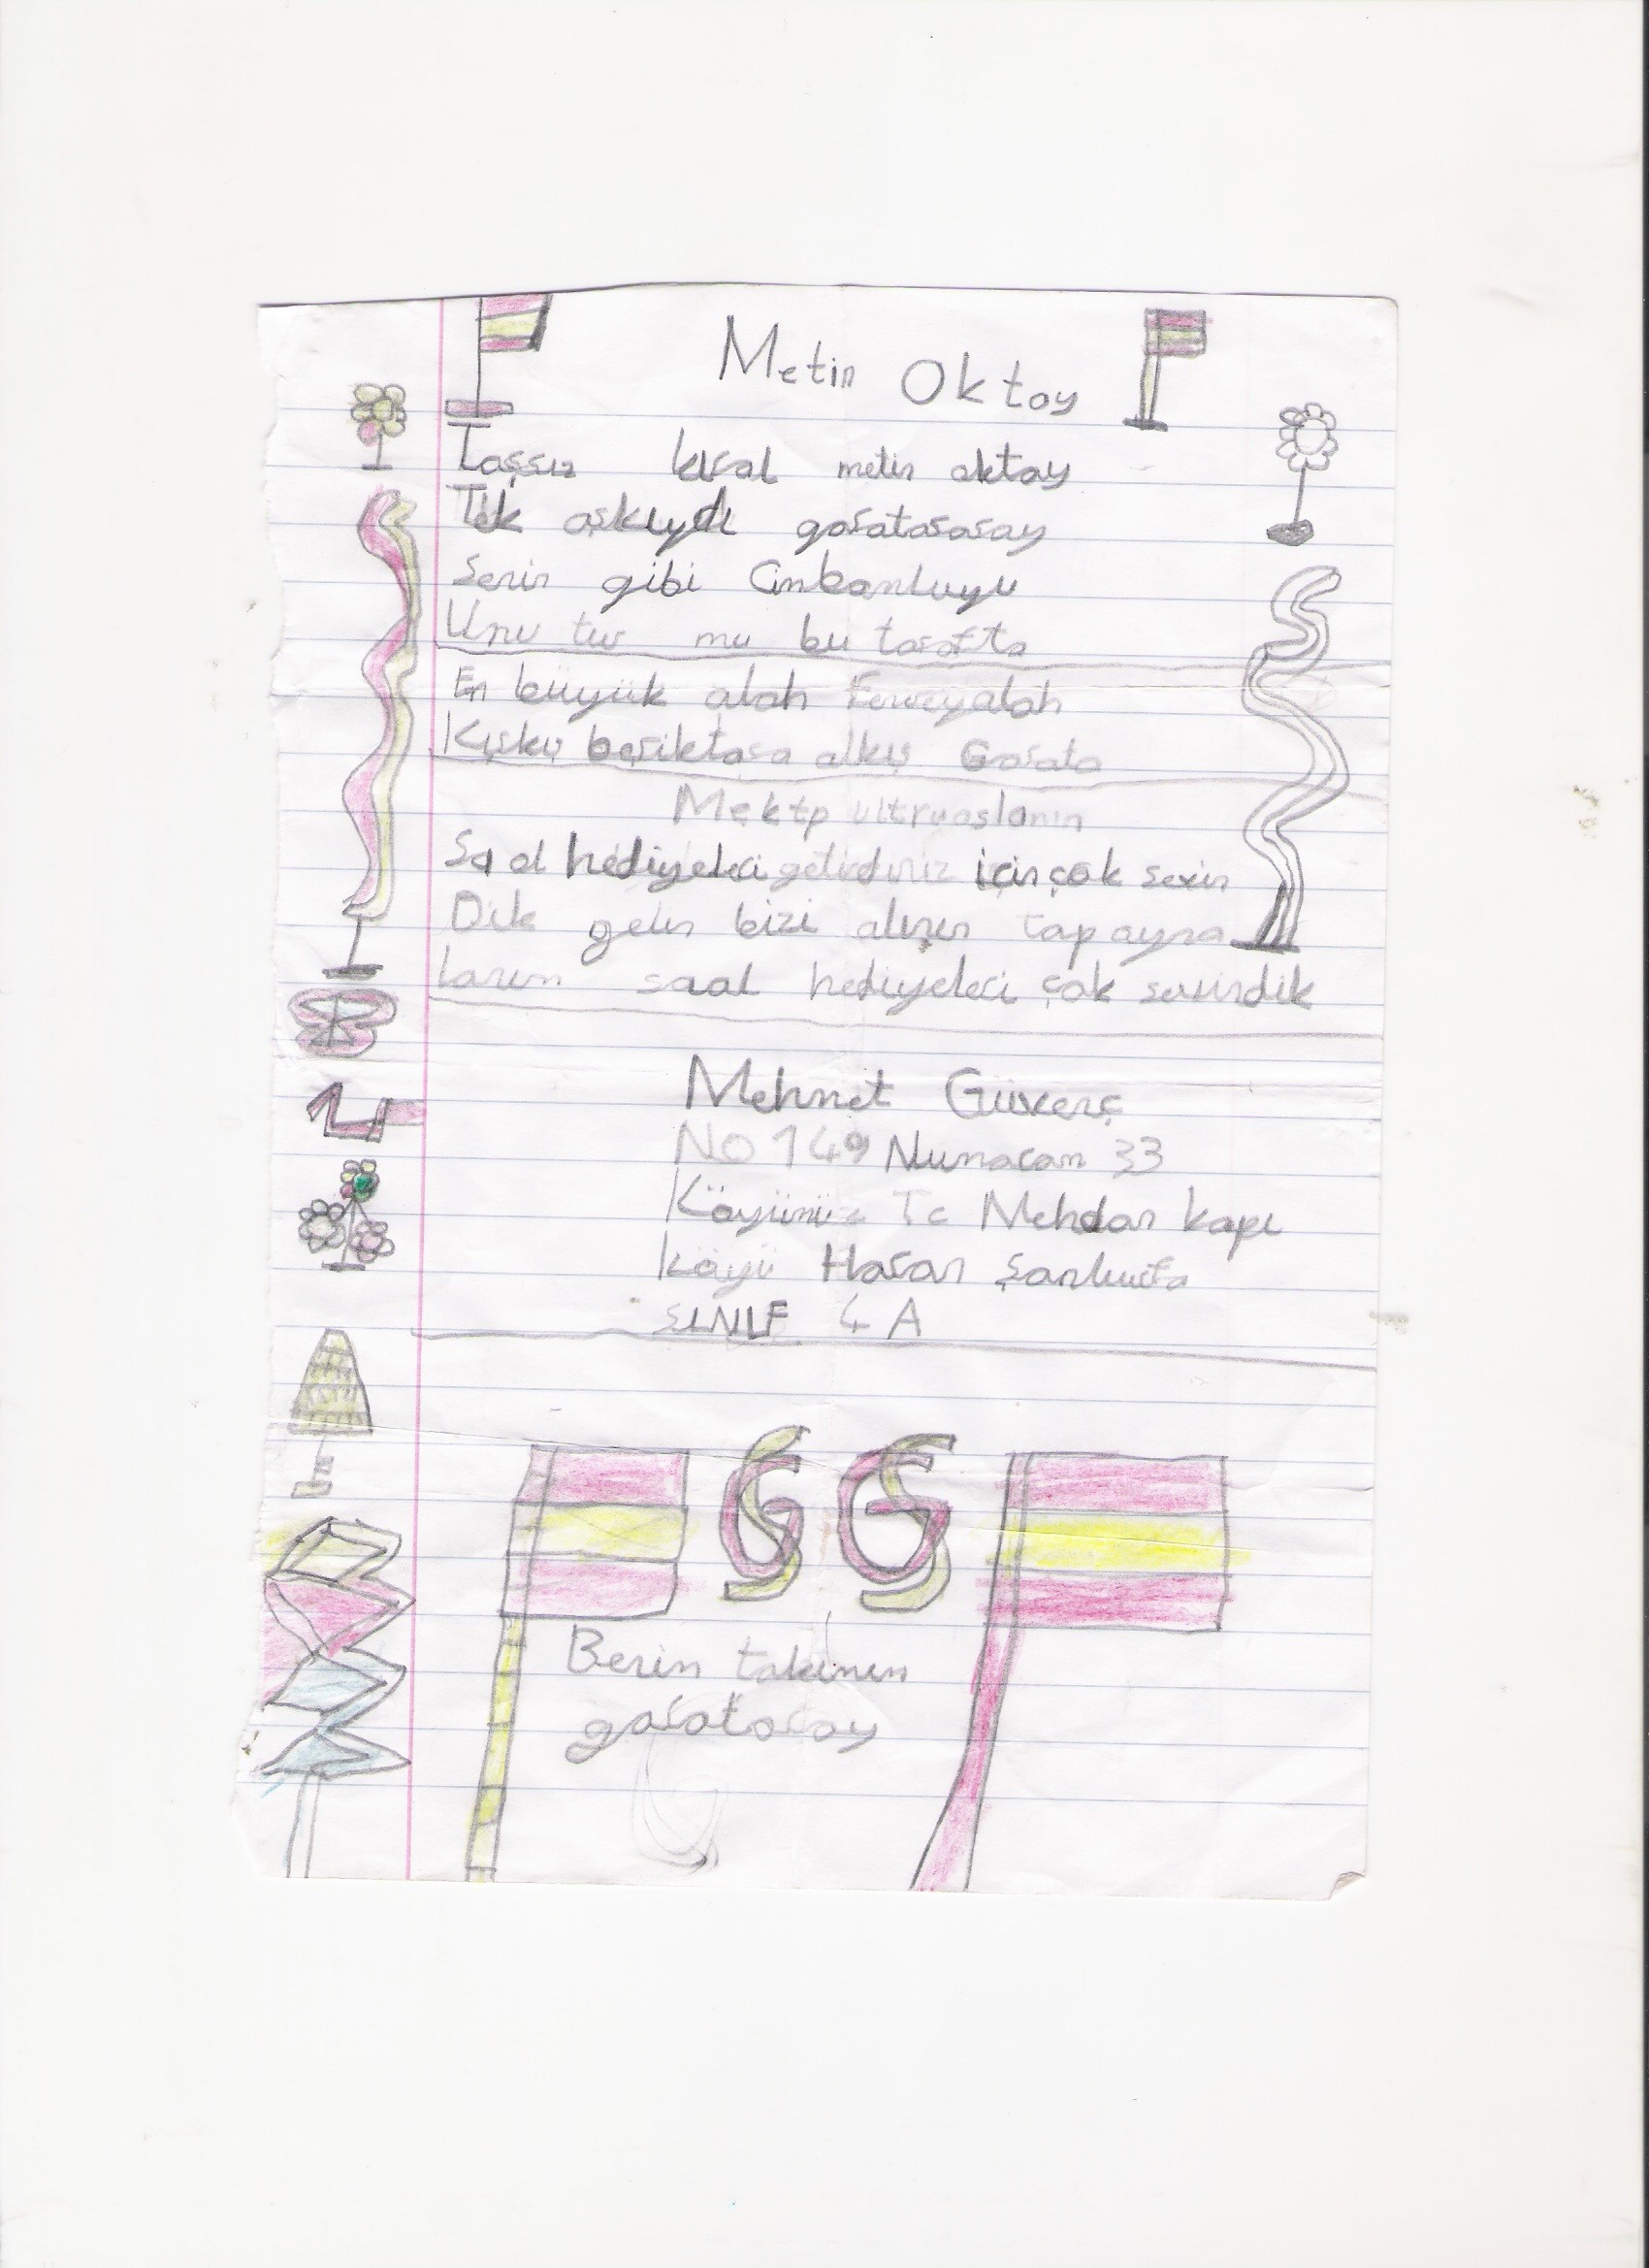 Metin Oktay
Taşsız kıral metin oktay
Tek aşkıydı garatasaray
Senin gibi Cimbomluyu
Unu tur mu bu tarafta
En büyük alah
Kışkış beşiktaşa alkış Garata
Mektp ultruaslanın
Saal hediyeleri getirdiniz için çok sevin
Dik gelin bizi alının
ların saal hediyeleri çok sevindik
Mehmet Güvenç
No 149 Numaram 33
Köyünüz Tc Mehdan kapı
Köyü Haran Şanlıurfa
SINIF 4 A
GS GS
Benim takımın
garataray